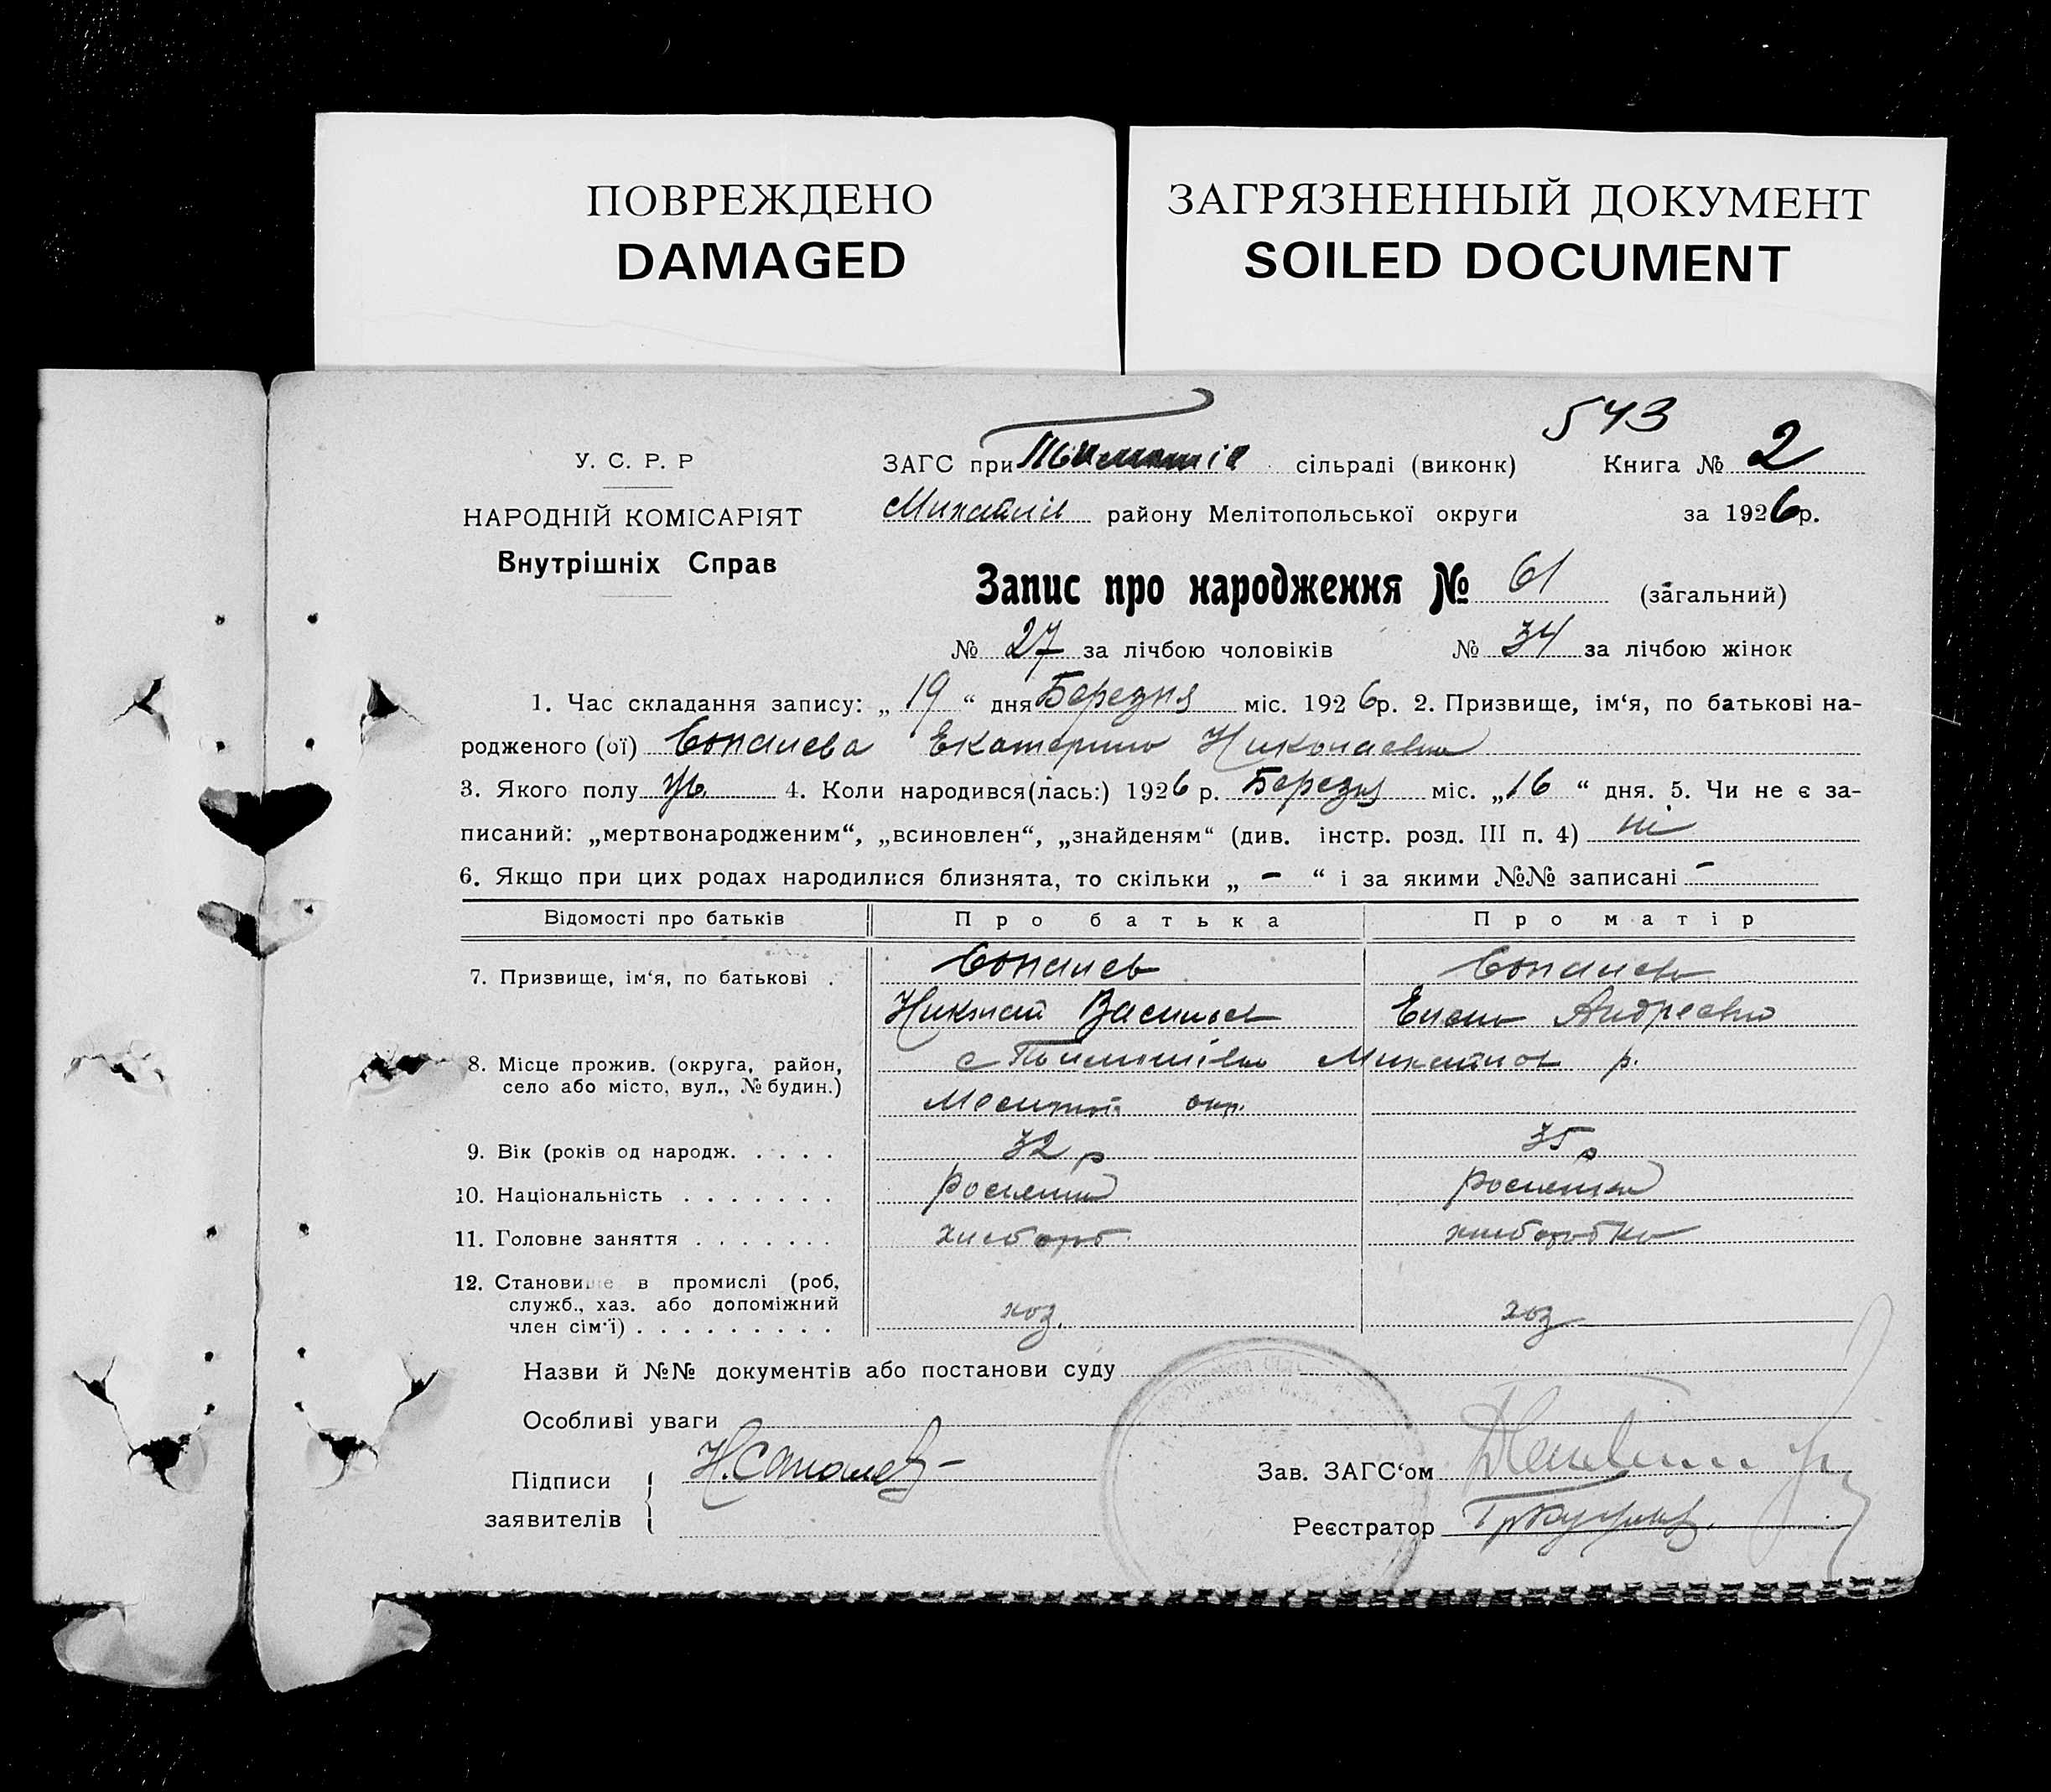 ПОВРЕЖДЕНО
DAMAGED
ЗАГРЯЗНЕННЫЙ ДОКУМЕНТ
SOILED DOCUMENT
543
У. С. Р. Р
НАРОДНІЙ КОМІСАРІЯТ
Внутрішніх Справ
ЗАГС при сільраді (виконк) Книга № 2
району Мелітопольської округи за 1926р.
Запис про народження № 61 (загальний)
№ 27 за лічбою чоловіків № 34 за лічбою жінок
1. Час складання запису: „ 19 “ дня Березня міс. 1926р. 2. Призвище, ім‘я, по батькові на-
родженого (ої) Екатерина Николаевна
3. Якого полу 4. Коли народився(лась:) 1926 р. Березня міс. „16 “ дня. 5. Чи не є за-
писаний: „мертвонародженим“, „всиновлен“, „знайденям“ (див. інстр. розд. III п. 4) ні
6. Якщо при цих родах народилися близнята, то скільки „ - “ і за якими №№ записані -
Відомості про батьків Про батька Про матір
7. Призвище, ім‘я, по батькові .
Николай Васильев Елена Андреевна
8. Місце прожив. (округа, район,
село або місто, вул., № будин.)
с р.
окр.
9. Вік (років од народж. . . . . 32 р 35 р
10. Національність . . . . . . .
11. Головне заняття . . . . . . . хлебороб хлеборобка
12. Становище в промислі (роб,
служб., хаз. або допоміжний
член сім‘ї) . . . . . . . . . хоз. хоз
Назви й №№ документів або постанови суду
Особливі уваги
Підписи
заявителів
Зав. ЗАГС‘ом
Реєстратор